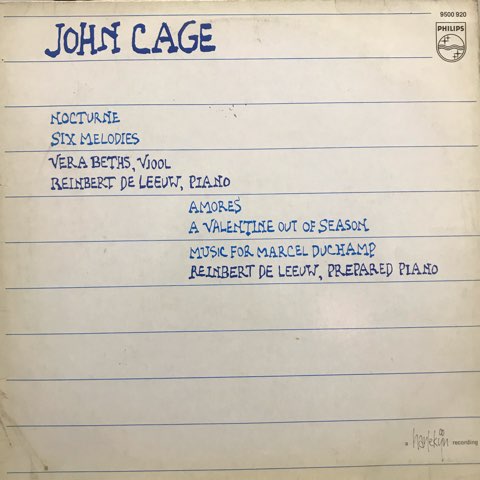 9500 920
JOHN CAGE
PHILIPS
NOCTURNE
SIX MELODIES
VERA BETHS, VIOOL
REINBERT DE LEEUW, PIANO
AMORES
A VALENTINE OUT OF SEASON
MUSIC FOR MARCEL DUCHAMP
REINBERT DE LEEUW, PREPARED PIANO
a harlekijn recording